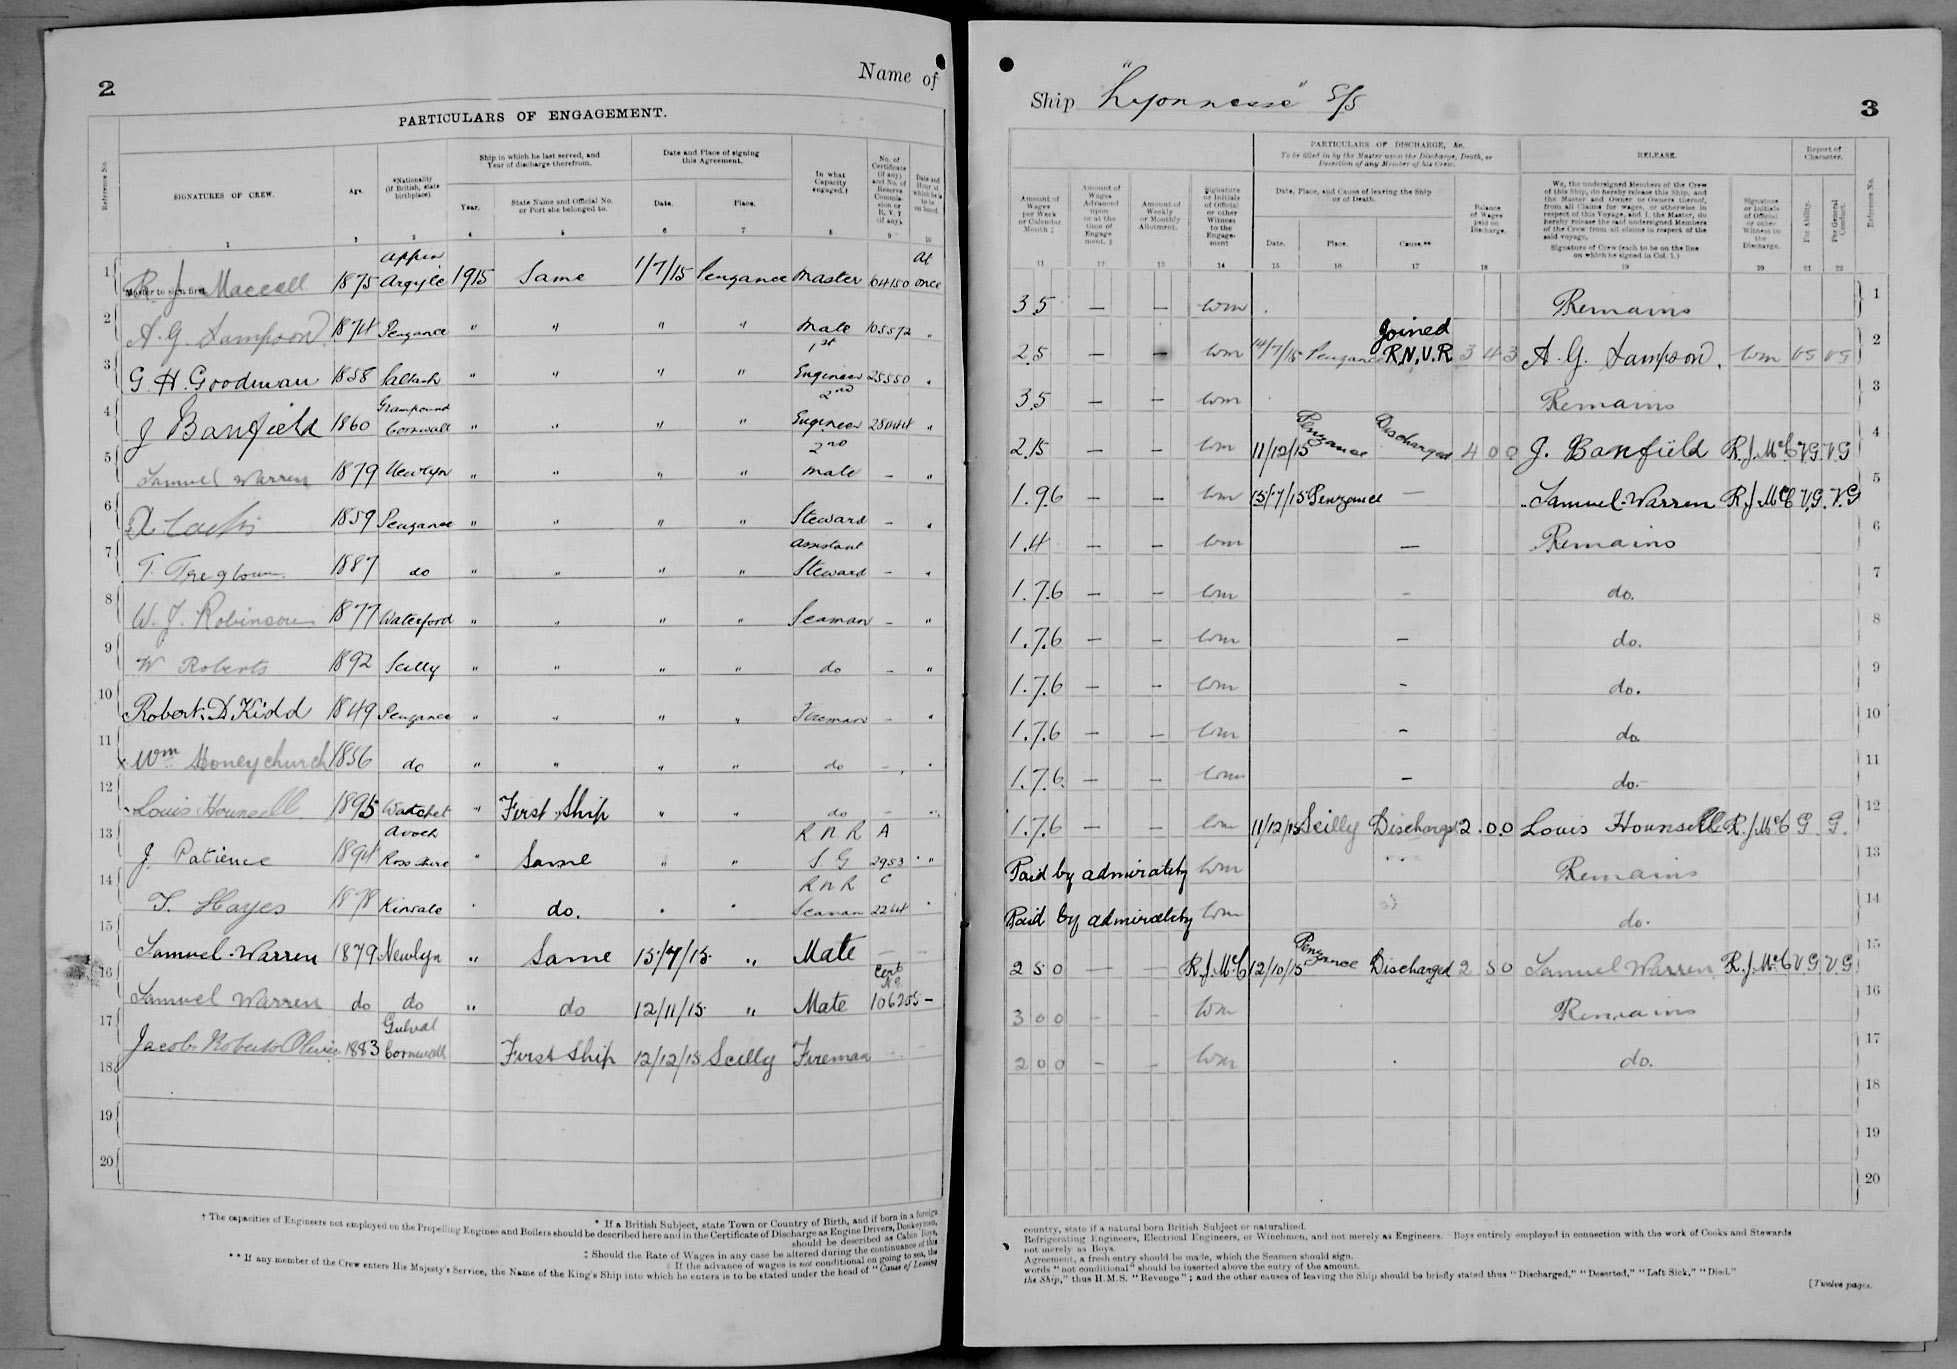 2
Name of
PARTICULARS OF ENGAGEMENT.
Reference No.
SIGNATURES OF CREW.
Age.
*Nationality (If British, state birthplace).
Ship in which he last served, and Year of discharge therefrom.
Year.
State Name and Official No. or Port she belonged to.
Date and Place of signing this Agreement.
Date.
Place.
In what Capacity engaged.†
No. of Certificate (if any) and No. of Reserve Commission or R.V.2 (if any).
Date and Hour at which he is to be on board.
1 2 3 4 5 6 7 8 9 10
Master to sign first
1 R. J. Maccall 1875 Appin Argyle 1915 Same 1/7/15 Penzance Master 04150 At once
2 A. G. Sampson 1874 Penzance " " " " Mate 105572 "
3 G. H. Goodman 1858 Saltash " " " " 1st Engineer 25550 "
4 J Banfield 1860 Grampound Cornwall " " " " 2nd Engineer 28044 "
5 Samuel Warren 1879 Newlyn " " " " 2nd Mate – "
6 1859 Penzance " " " " Steward – "
7 T. Tregloun 1887 do " " " " Assistant Steward – "
8 W. J. Robinson 1877 Waterford " " " " Seaman – "
9 W Roberts 1892 Scilly " " " " do – "
10 Robert. D Kidd 1849 Penzance " " " " Fireman – "
11 Wm Honeychurch 1856 do " " " " do – "
12 Louis Hounsell 1895 Watchet " First Ship " " do – "
13 J. Patience 1894 Avoch Ross shire " Same " " R N R S. G A 2953 " "
14 T. Hayes 1878 Kinsale " do. " " R N R Seaman C 2264 "
15 Samuel Warren 1879 Newlyn " Same 15/7/15 " Mate – –
16 Samuel Warren do do " do 12/11/15 " Mate Cert No. 106205 –
17 Jacob Roberts Olivier 1883 Gulval Cornwall First Ship 12/12/15 Scilly Fireman – –
18
19
20
* If a British Subject, state Town or Country of Birth, and if born in a foreign
† The capacities of Engineers not employed on the Propelling Engines and Boilers should be described here and in the Certificate of Discharge as Engine Drivers, Donkeymen,
should be described as Cabin Boys,
‡ Should the Rate of Wages in any case be altered during the continuance of this
If the advance of wages is not conditional on going to sea, the
** If any member of the Crew enters His Majesty's Service, the Name of the King's Ship into which he enters is to be stated under the head of "Cause of Leaving
Ship "Lyonnesse" S/S
3
Amount of Wages per Week or Calendar Month ‡
Amount of Wages Advanced upon or at the time of Engagement. §
Amount of Weekly or Monthly Allotment.
Signature or Initials of Official or other Witness to the Engagement
PARTICULARS OF DISCHARGE, &c.
To be filled in by the Master upon the Discharge, Death, or Desertion of any Member of his Crew.
Date, Place, and Cause of leaving the Ship or of Death.
Date.
Place.
Cause.**
Balance of Wages paid on Discharge.
RELEASE.
We, the undersigned Members of the Crew of this Ship, do hereby release this Ship, and the Master and Owner or Owners thereof, from all Claims for wages, or otherwise in respect of this Voyage, and I, the Master, do hereby release the said undersigned Members of the Crew from all claims in respect of the said voyage.
Signature of Crew (each to be on the line on which he signed in Col. 1.)
Signature or Initials of Official or other Witness to the Discharge.
Report of Character.
For Ability.
For General Conduct.
Reference No.
11 12 13 14 15 16 17 18 19 20 21 22
3 5 – – Wm Remains 1
2 5 – – Wm 14/7/15 Penzance Joined R.N.V.R 3 4 3 A. G. Sampson. Wm VG VG 2
3 5 – – Wm Remains 3
2.15 – – Wm 11/12/15 Penzance Discharged 4 0 0 J. Banfield R.J.McC V.G V.G 4
1.9.6 – – Wm 15/7/15 Penzance – Samuel Warren R.J.McC V.G. V.G 5
1.4 – – Wm – Remains 6
1.7.6 – – Wm – do. 7
1.7.6 – – Wm – do. 8
1.7.6 – – Wm – do. 9
1.7.6 – – Wm – do. 10
1.7.6 – – Wm – do. 11
1.7.6 – – Wm 11/12/15 Scilly Discharged 2.0.0 Louis Hounsell R.J.McC G. G. 12
Paid by admiralty Wm Remains 13
Paid by admiralty Wm do. 14
2 5 0 – – R.J.McC 12/10/15 Penzance Discharged 2 5 0 Samuel Warren R.J.McC V G V G 15
3 0 0 – – Wm Remains 16
2 0 0 – – Wm do. 17
18
19
20
country, state if a natural born British Subject or naturalized.
Refrigerating Engineers, Electrical Engineers, or Winchmen, and not merely as Engineers. Boys entirely employed in connection with the work of Cooks and Stewards
not merely as Boys.
Agreement, a fresh entry should be made, which the Seamen should sign.
words "not conditional" should be inserted above the entry of the amount.
the Ship," thus H.M.S. "Revenge"; and the other causes of leaving the Ship should be briefly stated thus "Discharged," "Deserted," "Left Sick," "Died."
[Twelve pages.